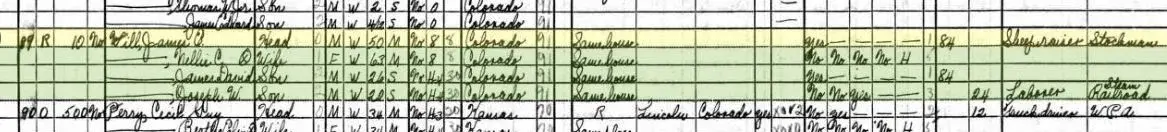 Thomas W Jr. Son M W 2 S No 0 Colorado 91
James Edward Son M W S No 0 Colorado 91
89 R 10 No Will, James C. Head M W 50 M No 8 8 Colorado 91 Same house Yes — — — — 1 84 Sheep raiser Stockman
—, Nellie C. Wife F W 63 M No 8 8 Colorado 91 Same house No No No No H
—, James David Son M W 26 S No H-4 30 Colorado 91 Same house Yes — — — — 1 84
—, Joseph W. Son M W 20 S No H-4 30 Colorado 91 Same house No No Yes — — 24 Laborer Steam Railroad
90 O 500 No Perry, Cecil Guy Head M W 34 M No H-3 30 Kansas 70 R Lincoln Colorado No yes — — — 12 Truck driver W.P.A.
Wife F W 34 M No Kansas No No No No H